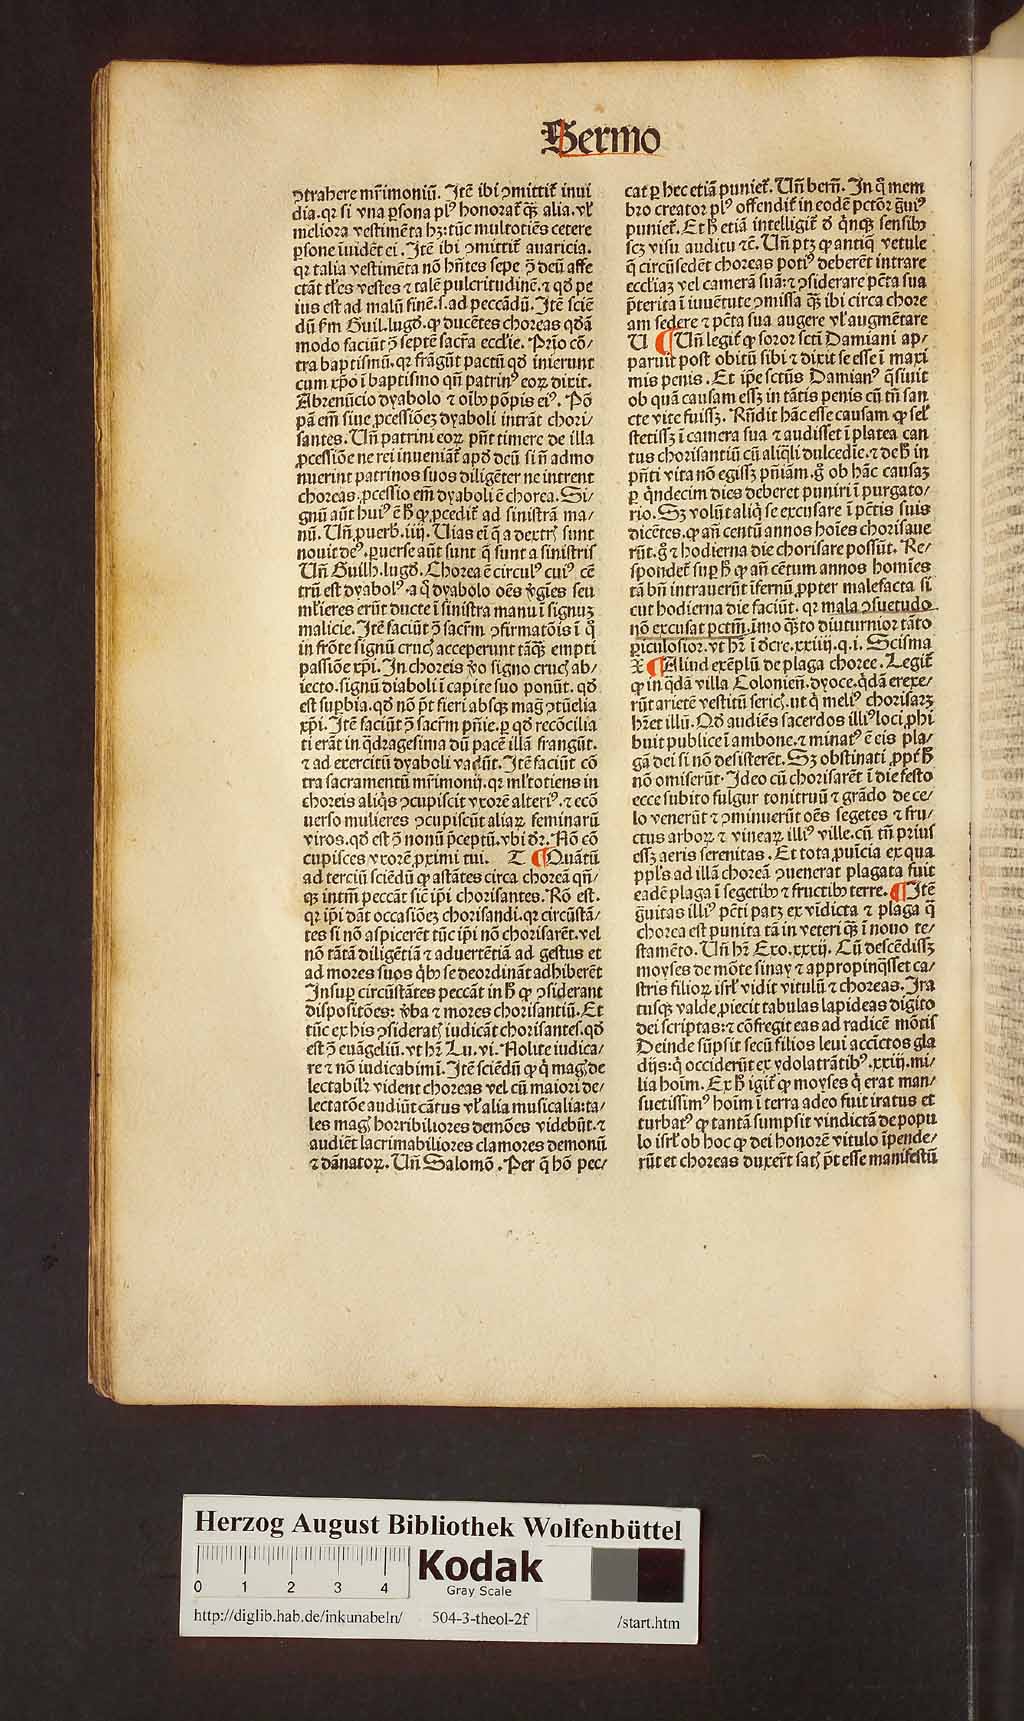 Sermo
ꝯtrahere mr̃imoniũ. Itẽ ibi ꝯmittit᷑ inui
dia. qꝛ si vna ꝑsona plꝰ honorat᷑ qꝫ̃ alia. vl̕
meliora vestimẽta hꝫ: tũc multotiẽs cetere
ꝑsone ĩuidẽt ei. Itẽ ibi ꝯmittit᷑ auaricia.
qꝛ talia vestimẽta nõ hñtes sepe ꝯ̃ deũ affe
ctãt tl̕es vestes ⁊ talẽ pulcritudinẽ. ⁊ qd̕ pe
ius est ad malũ finẽ. s. ad peccãdũ. Itẽ sciẽ
dũ s̃m Guil. lugd̕. ꝙ ducẽtes choreas qd̕ã
modo faciũt ꝯ̃ septẽ sacr̃a eccl̕ie. Pr̃io cõ/
tra baptismũ. qꝛ frãgũt pactũ qd̕ inierunt
cum xp̃o ĩ baptismo qñ patrinꝰ eoꝝ dixit.
Abrenũcio dyabolo ⁊ oĩbꝰ põpis eiꝰ. Põ
pã em̃ siue ꝓcessiõeꝫ dyaboli intrãt chori/
santes. Uñ patrini eoꝝ pñt timere de illa
ꝓcessiõe ne rei inueniãt᷑ apd̕ deũ si ñ admo
nuerint patrinos suos diligẽter ne intrent
choreas. ꝓcessio em̃ dyaboli ẽ chorea. Si/
gnũ aũt huiꝰ ẽ h̕ ꝙ ꝓcedit᷑ ad sinistrã ma/
nũ. Uñ ꝓuerb̕. iiij. Uias ei̕ q̃ a dextr̕ sunt
nouit deꝰ. ꝑuerse aũt sunt q̃ sunt a sinistris
Uñ Guilh. lugd̕. Chorea ẽ circulꝰ cuiꝰ cẽ
trũ est dyabolꝰ. a q̊ dyabolo oẽs v̕gĩes seu
ml̕ieres erũt ducte ĩ sinistra manu ĩ signuꝫ
malicie. Itẽ faciũt ꝯ̃ sacr̃m ꝯfirmatõis ĩ q̊
in frõte signũ cruc̕ acceperunt tãqꝫ̃ empti
passiõe xp̃i. In choreis v̕o signo cruc̕ ab/
iecto. signũ diaboli ĩ capite suo ponũt. qd̕
est suꝑbia. qd̕ nõ p̃t fieri absqꝫ mag̃ ꝯtũelia
xp̃i. Itẽ faciũt ꝯ̃ sacr̃m pñie. ꝑ qd̕ recõcilia
ti erãt in q̃dragesima dũ pacẽ illã frangũt.
⁊ ad exercitũ dyaboli vadũt. Itẽ faciũt cõ
tra sacramentũ mr̃imonij. qꝛ ml̕totiens in
choreis aliq̃s ꝯcupiscit vxorẽ alteriꝰ. ⁊ ecõ
uerso mulieres ꝯcupiscũt aliaꝝ feminarũ
viros. qd̕ est ꝯ̃ nonũ p̃ceptũ. vbi dr̃. Nõ cõ
cupisces vxorẽ ꝓximi tui. T ¶Quãtũ
ad terciũ sciẽdũ ꝙ astãtes circa choreã qñ/
qꝫ intm̃ peccãt sic̃ ip̃i chorisantes. Rõ est.
qꝛ ip̃i dãt occasiõeꝫ chorisandi. qꝛ circũstã/
tes si nõ aspicerẽt tũc ip̃i nõ chorisarẽt. vel
nõ tãtã diligẽtiã ⁊ aduertẽtiã ad gestus et
ad mores suos q̊bꝰ se deordinãt adhiberẽt
Insuꝑ circũstãtes peccãt in h̕ ꝙ ꝯsiderant
dispositões: v̕ba ⁊ mores chorisantiũ. Et
tũc ex his ꝯsiderat̕ iudicãt chorisantes. qd̕
est ꝯ̃ euãgeliũ. vt hr̃ Lu. vi. Nolite iudica/
re ⁊ nõ iudicabimĩ. Itẽ sciẽdũ ꝙ q̊ mag̕ de
lectabilr̕ vident choreas vel cũ maiori de/
lectatõe audiũt cãtus vl̕ alia musicalia: ta/
les mag̕ horribiliores demões videbũt. ⁊
audiẽt lacrimabiliores clamores demonũ
⁊ dãnatoꝝ. Uñ Salomõ. Per q̃ hõ pec/
cat ꝑ hec etiã puniet᷑. Uñ bern̕. In q̊ mem
bro creator plꝰ offendit᷑ in eodẽ pctõr g̃uiꝰ
puniet᷑. Et h̕ etiã intelligit᷑ d̕ q̊nqꝫ sensibꝰ
scꝫ visu auditu ⁊c̃. Uñ ptꝫ ꝙ antiq̃ vetule
q̃ circũsedẽt choreas potiꝰ deberẽt intrare
eccl̕iaꝫ vel camerã suã: ⁊ ꝯsiderare pct̃a sua
p̃terita ĩ iuuẽtute ꝯmissa qꝫ̃ ibi circa chore
am sedere ⁊ pct̃a sua augere vl̕ augmẽtare
U ¶Uñ legit᷑ ꝙ soror scti Damiani ap/
paruit post obitũ sibi ⁊ dixit se esse ĩ maxi
mis penis. Et ip̃e sctũs Damianꝰ q̃siuit
ob quã causam essꝫ in tãtis penis cũ tñ san
cte vite fuissꝫ. Rñdit hãc esse causam ꝙ sel̕
stetissꝫ ĩ camera sua ⁊ audisset ĩ platea can
tus chorisantiũ cũ aliq̃li dulcedĩe. ⁊ de h̕ in
pñti vita nõ egissꝫ pñiam. g̊ ob hãc causaꝫ
ꝑ q̊ndecim dies deberet puniri ĩ purgato/
rio. Sꝫ volũt aliq̊ se excusare ĩ pct̃is suis
dicẽtes. ꝙ añ centũ annos hoĩes chorisaue
rũt. g̊ ⁊ hodierna die chorisare possũt. Re/
spondet᷑ suꝑ h̕ ꝙ añ cẽtum annos homĩes
tã bñ intrauerũt ĩfernũ ꝓpter malefacta si
cut hodierna die faciũt. qꝛ mala ꝯsuetudo
nõ excusat pctm̃. ĩmo qꝫ̃to diuturnior tãto
ꝑiculosior. vt hr̃ ĩ dc̃re. xxiiij. q. i. Scisma
X ¶Aliud exẽplũ de plaga choree. Legit᷑
ꝙ in q̃dã villa Colonieñ. dyoce. q̃dã erexe/
rũt arietẽ vestitũ seric̕. ut q̊ meliꝰ chorisarꝫ
hr̃et illũ. Qd̕ audiẽs sacerdos illiꝰ loci ꝓhi
buit publice ĩ ambone. ⁊ minatꝰ ẽ eis pla/
gã dei si nõ desisterẽt. Sꝫ obstinati ꝓpt᷑ h̕
nõ omiserũt. Ideo cũ chorisarẽt ĩ die festo
ecce subito fulgur tonitruũ ⁊ grãdo de ce/
lo venerũt ⁊ ꝯminuerũt oẽs segetes ⁊ fru/
ctus arboꝝ ⁊ vineaꝝ illiꝰ ville. cũ tñ prius
essꝫ aeris serenitas. Et tota ꝓuĩcia ex qua
ppl̕s ad illã choreã ꝯuenerat plagata fuit
eadẽ plaga ĩ segetibꝰ ⁊ fructibꝰ terre. ¶Itẽ
g̃uitas illiꝰ pct̃i patꝫ ex vĩdicta ⁊ plaga q̃
chorea est punita tã in veteri qꝫ̃ ĩ nouo te/
stamẽto. Uñ hr̃ Exo. xxxij. Cũ descẽdissꝫ
moyses de mõte sinay ⁊ appropinq̃sset ca/
stris filioꝝ isrl̕ vidit vitulũ ⁊ choreas. Ira
tusqꝫ valde ꝓiecit tabulas lapideas digito
dei scriptas: ⁊ cõfregit eas ad radicẽ mõtis
Deinde sũpsit secũ filios leui accĩctos gla
dijs: q̊ occiderũt ex ydolatrãtibꝰ. xxiij. mi/
lia hoĩm. Ex h̕ igit᷑ ꝙ moyses q̊ erat man/
suetissimꝰ hoĩm ĩ terra adeo fuit iratus et
turbatꝰ ꝙ tantã sumpsit vindictã de popu
lo isrl̕ ob hoc ꝙ dei honorẽ vitulo ĩpende/
rũt et choreas duxer̃t sat̕ p̃t esse manifestũ
Herzog August Bibliothek Wolfenbüttel
0 1 2 3 4
Kodak
Gray Scale
http://diglib.hab.de/inkunabeln/ 504-3-theol-2f /start.htm